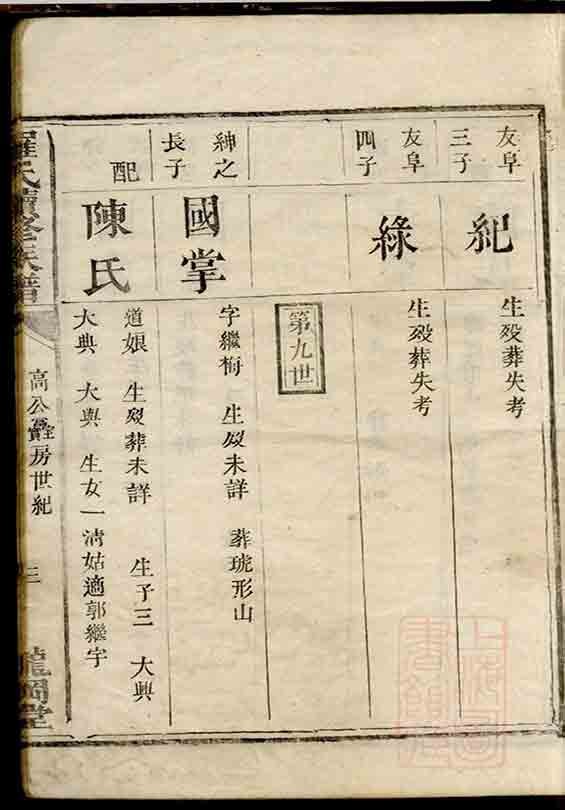 友阜
三子
紀
生歿葬失考
友阜
四子
緣
生歿葬失考
第九世
紳之
長子
國掌
字繼梅 生歿未詳 葬琥形山
配
陳氏
道娘 生歿葬未詳 生子三 大興
大典 大與 生女一 清姑適郭繼宇
羅氏續修族譜
高公 房世紀
三
龍岡堂
上海圖
書館藏